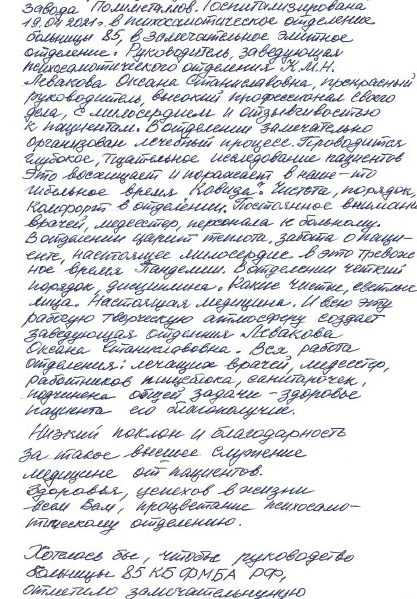 завода "Полиметаллов. Госпитализирована
19.04.2021г. в психосоматическое отделение
больницы 85, в замечательное элитное
отделение. Руководитель, заведующая
психосоматического отделения - К.М.Н.
Левакова Оксана Станиславовна, прекрасный
руководитель, высокий профессионал своего
дела, с милосердием и отзывчивостью
к пациентам. В отделении замечательно
организован лечебный процесс. Проводится
глубокое, тщательное исследование пациентов
Это восхищает и поражает в наше-то
гибельное время "Ковида". Чистота, порядок,
комфорт в отделении. Постоянное внимание
врачей, медсестер, персонала к больному.
В отделении царит теплота, забота о паци-
енте, настоящее милосердие в это тревож
ное время Пандемии. В отделении четкий
порядок, дисциплина. Какие чистые, светлые
лица. Настоящая медицина. И всю эту
рабочую творческую атмосферу создает
заведующая отделения Левакова
Оксана Станиславовна. Вся работа
отделения: лечащих врачей, медсестер,
работников пищеблока, санитарочек,
подчинена общей задаче - здоровье
пациента его благополучие.
Низкий поклон и благодарность
за такое высшее служение
медицине от пациентов.
Здоровья, успехов в жизни
всем Вам, процветание психосома-
тическому отделению.
Хотелось бы, чтобы руководство
больницы 85 КБ ФМБА РФ,
отметило замечательную